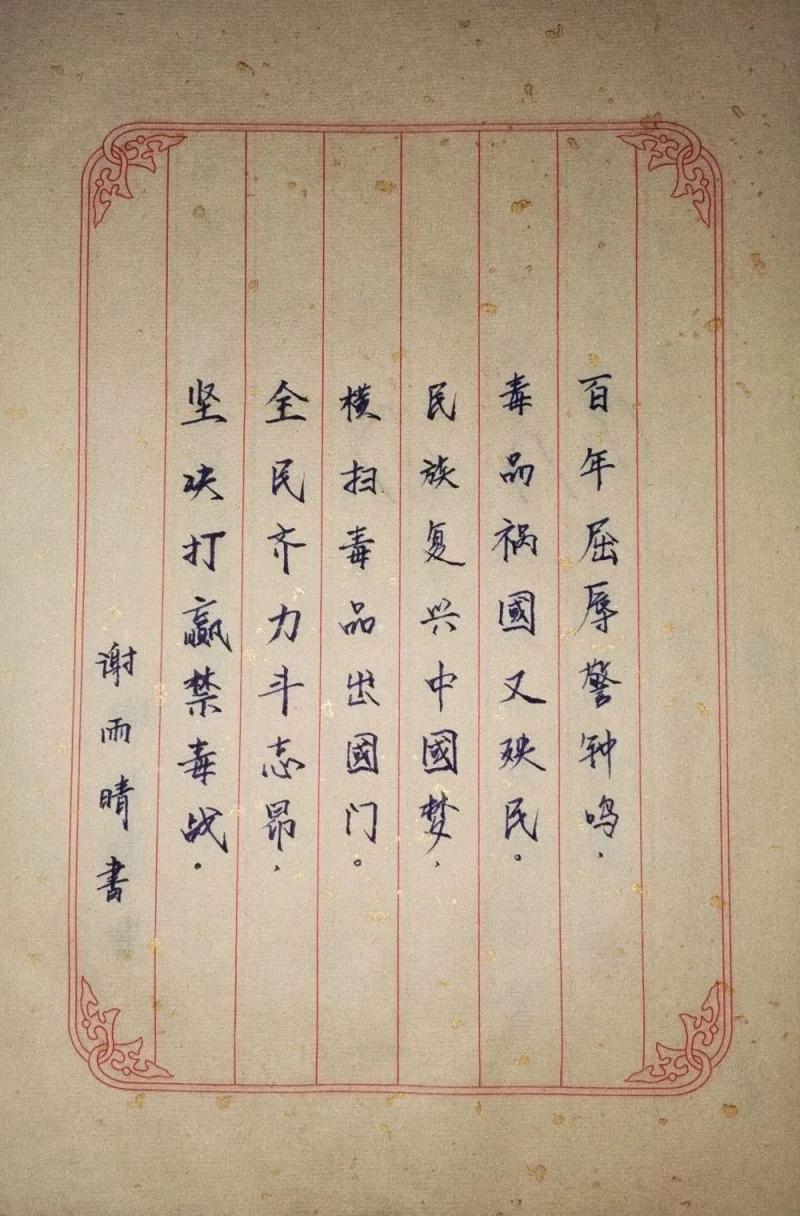 百年屈辱警钟鸣，
毒品祸國又殃民。
民族复兴中國梦，
横扫毒品出國门。
全民齐力斗志昂，
坚决打赢禁毒战。
谢雨晴书